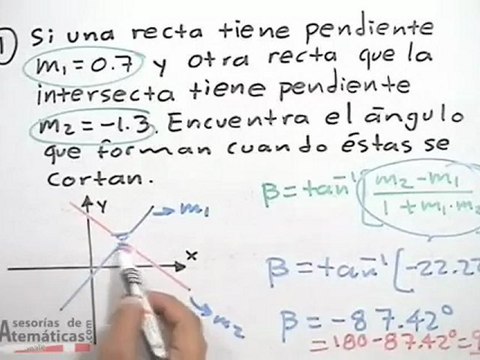 1) Si una recta tiene pendiente
m₁=0.7 y otra recta que la
intersecta tiene pendiente
m₂=-1.3. Encuentra el ángulo
que forman cuando éstas se
cortan.
β=tan⁻¹[m₂-m₁/1+m₁·m₂
Y
m₁
x
m₂
β=tan⁻¹[-22.22
β=-87.42°
=180-87.42=9
Asesorías de
Matemáticas
.com